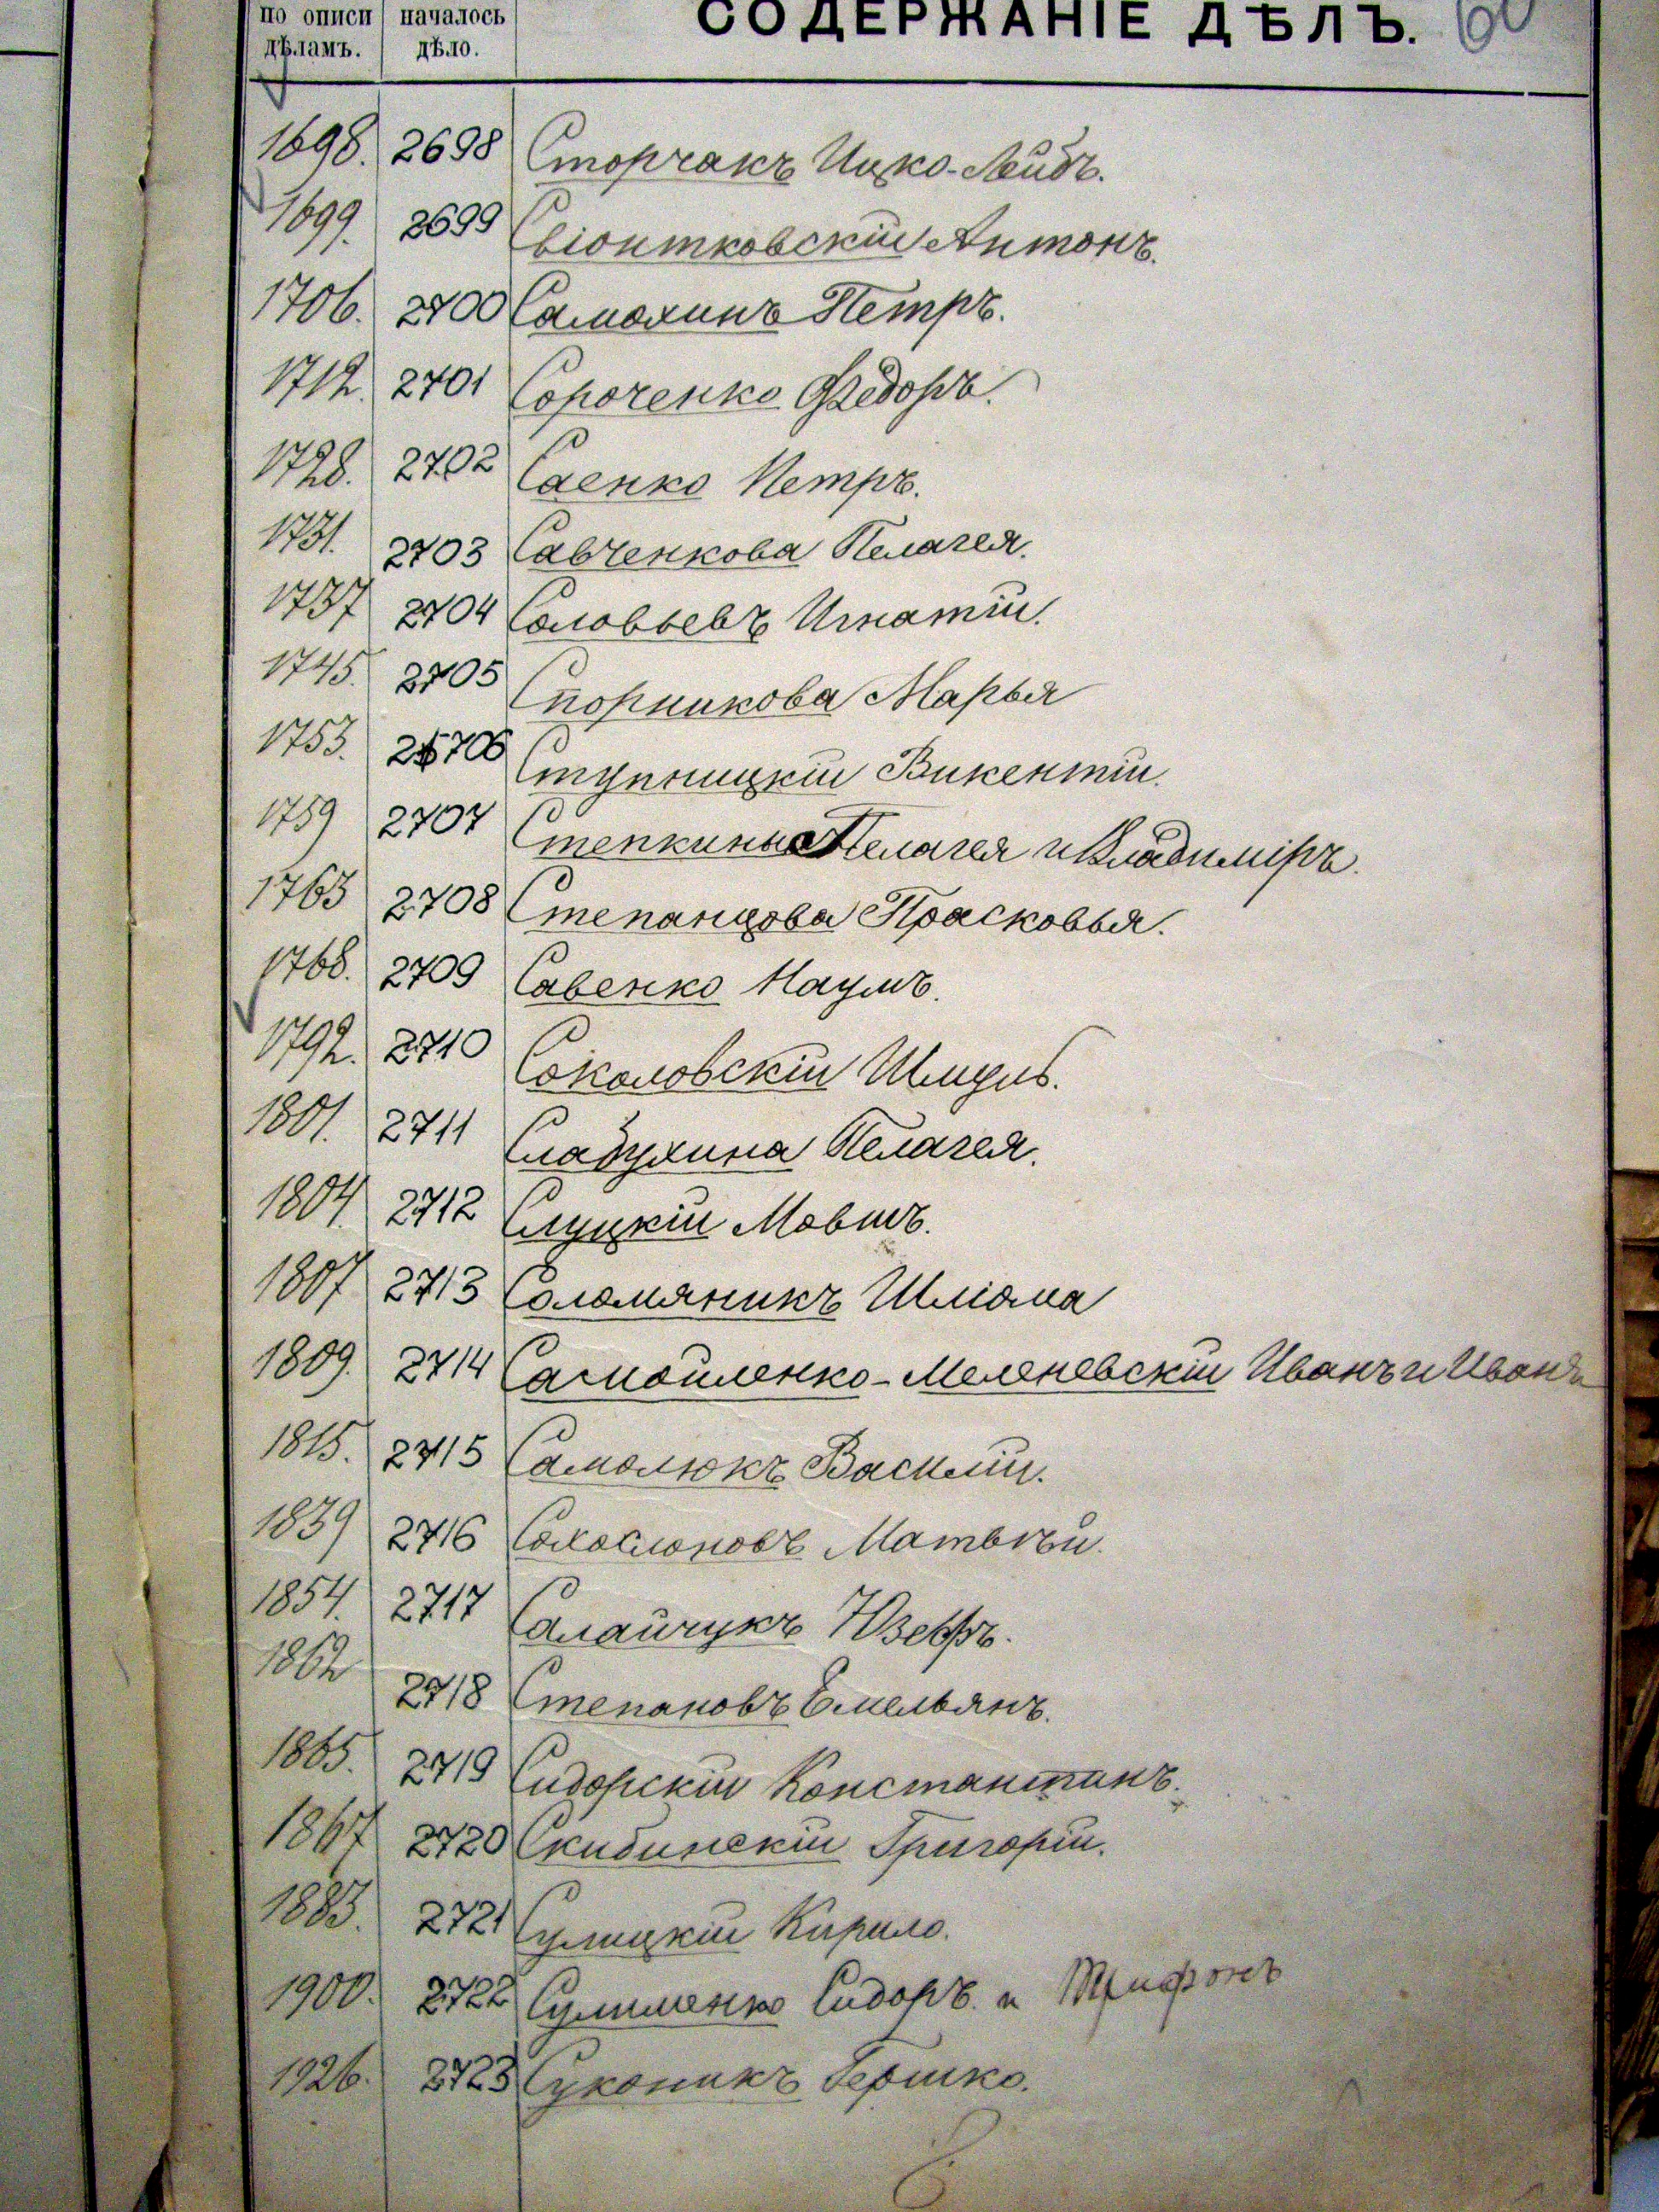 по описи началось СОДЕРЖАНІЕ ДѢЛЪ. 60
дѣламъ. дѣло.
1698. 2698 Сторчакъ Ицко-Лейбъ.
1699. 2699 Свіонтковскій Антонъ.
1706. 2700 Самохинъ Петръ.
1712. 2701 Сороченко Федоръ.
1728. 2702 Саенко Петръ.
1731. 2703 Савченкова Пелагея.
1737 2704 Соловьевъ Игнатій.
1745. 2705 Спорникова Марья
1753. 2706 Ступницкій Викентій.
1759 2707 Степкины Пелагея и Владиміръ.
1763 2708 Степанцова Прасковья.
1768. 2709 Савенко Наумъ.
1792. 2710 Соколовскій Шмуль.
1801. 2711 Слабухина Пелагея.
1804. 2712 Слуцкій Мовшъ.
1807 2713 Соломяникъ Шліома
1809. 2714 Самойленко-Меленевскій Иванъ и Иванъ
1815. 2715 Самолюкъ Василій.
1839 2716 Матвѣй.
1854. 2717 Салайчукъ Юзефъ.
1862 2718 Степановъ Емельянъ.
1865. 2719 Сидорскій Константинъ.
1867 2720 Скибинскій Григорій.
1883. 2721 Сулицкій Кирило.
1900. 2722 Сулименко Сидоръ. и Трифонъ
1926. 2723 Суконикъ Гершко.